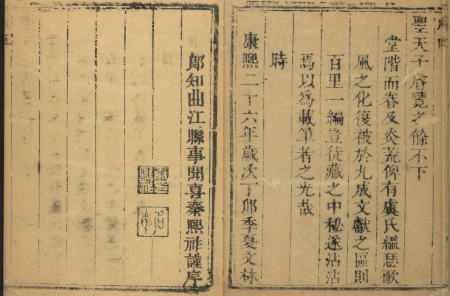 聖天子睿覽之餘不下
堂階而春及炎荒俾有虞氏縕瑟歌
風之化復被於九成文獻之區則
百里一編豈徒藏之中秘遂沾沾
焉以為載筆者之光哉
時
康熙二十六年歲次丁卯季夏文林
郎知曲江縣事聞喜秦熙祚謹序